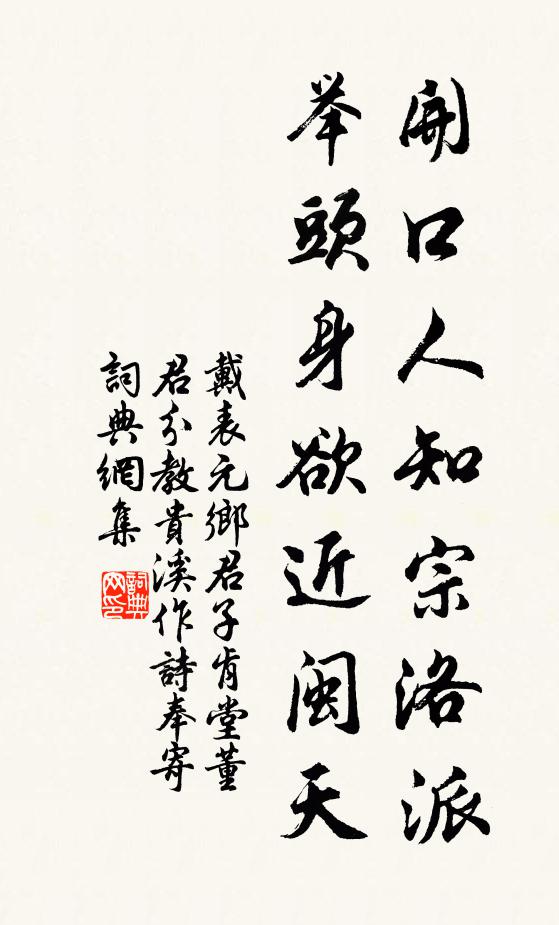 開口人知宗洛派
举頭身欲近闽天
戴表元鄉君子肯堂董
君分教貴溪作詩奉寄
詞典網集
詞典网印